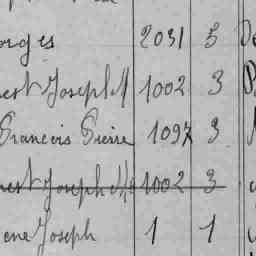 orges 2031 5
nest Joseph M 1002 3
Francois Pierre 1097 3
nest Joseph M 1002 3
ene Joseph 1 1